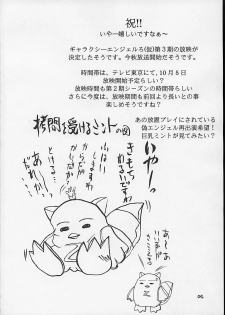 祝!!
いやー嬉しいですなぁ～
ギャラクシーエンジェルる(仮)第3期の放映が
決定したそうです。今秋放送開始だそうです。
時間帯は、テレビ東京にて、10月6日
放映開始予定らしい?
放映時間も第2期シーズンの時間帯らしい
さらに今度は、放映期間も前回より長いとの事
楽しめそうですね?
あの放置プレイにされている
偽エンジェル再出演希望!
巨乳ミントが見てみたい?
拷問を受けるミントの図
いやーっ
きもちわるいですわ
あぁ
だれか
これが
あーあ
06